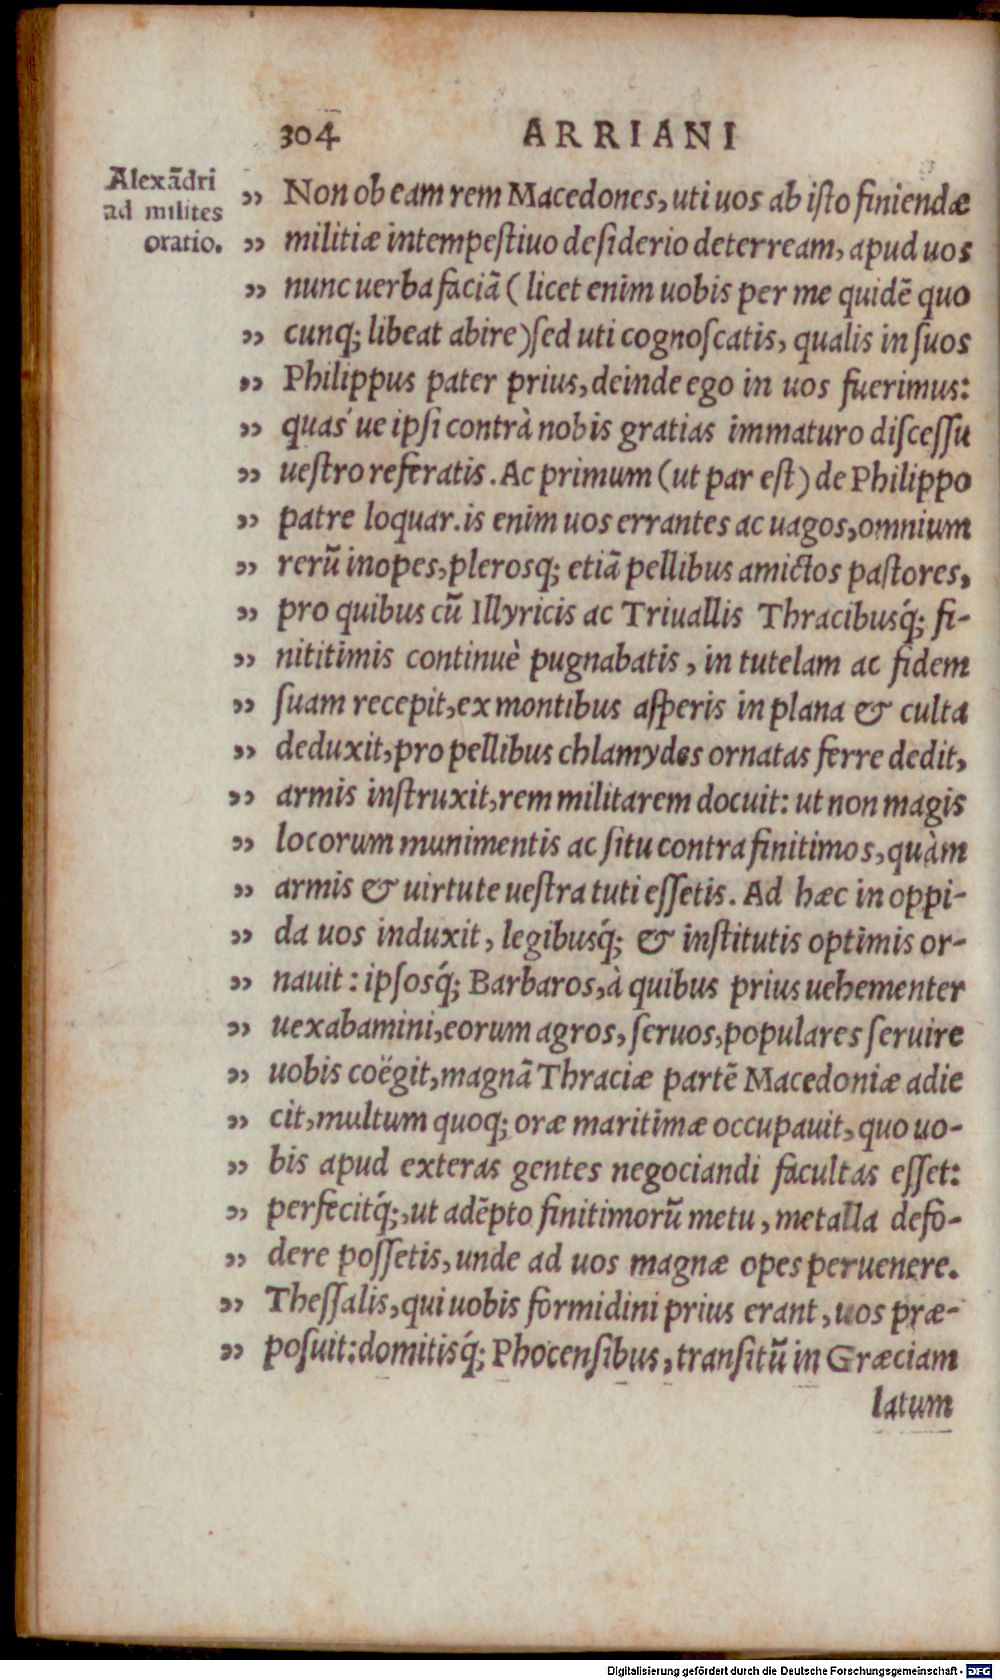 304 ARRIANI
Alexãdri
ad milites
oratio.
„ Non ob eam rem Macedones, uti uos ab iſto finiendæ
„ militiæ intempeſtiuo deſiderio deterream, apud uos
„ nunc uerba faciã ( licet enim uobis per me quidẽ quo
„ cunq; libeat abire) ſed uti cognoſcatis, qualis in ſuos
„ Philippus pater prius, deinde ego in uos fuerimus:
„ quas´ue ipſi contrà nobis gratias immaturo diſceſſu
„ ueſtro referatis. Ac primum (ut par eſt) de Philippo
„ patre loquar. is enim uos errantes ac uagos, omnium
„ rerũ inopes, plerosq; etiã pellibus amictos paſtores,
„ pro quibus cũ Illyricis ac Triuallis Thracibusq́; fi-
„ nititimis continuè pugnabatis, in tutelam ac fidem
„ ſuam recepit, ex montibus aſperis in plana & culta
„ deduxit, pro pellibus chlamydes ornatas ferre dedit,
„ armis inſtruxit, rem militarem docuit: ut non magis
„ locorum munimentis ac ſitu contra finitimos, quàm
„ armis & uirtute ueſtra tuti eſſetis. Ad hæc in oppi-
„ da uos induxit, legibusq́; & inſtitutis optimis or-
„ nauit: ipſosq́; Barbaros, à quibus prius uehementer
„ uexabamini, eorum agros, ſeruos, populares ſeruire
„ uobis coëgit, magnã Thraciæ partẽ Macedoniæ adie
„ cit, multum quoq; oræ maritimæ occupauit, quo uo-
„ bis apud exteras gentes negociandi facultas eſſet:
„ perfecitq́;, ut adẽpto finitimorũ metu, metalla defo-
„ dere poſſetis, unde ad uos magnæ opes peruenere.
„ Theſſalis, qui uobis formidini prius erant, uos præ-
„ poſuit: domitisq́; Phocenſibus, tranſitũ in Græciam
latum
Digitalisierung gefördert durch die Deutsche Forschungsgemeinschaft - DFG